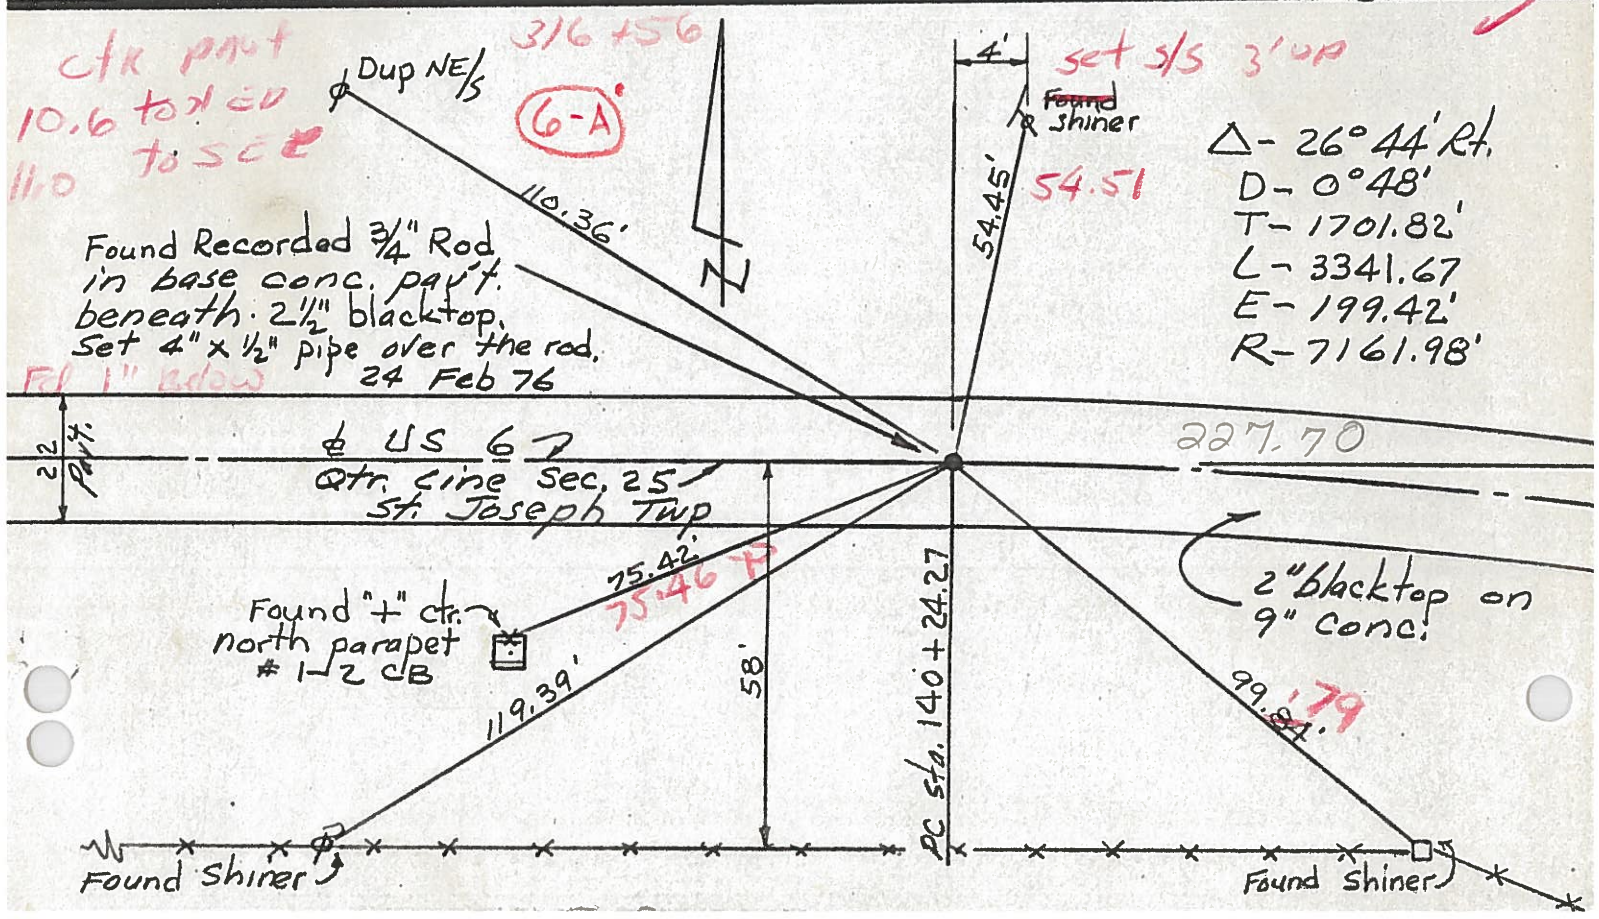 ck pavt
10.6 to NED
11.0 to SEE
Dup NE/S
316+56
6-A
4'
set S/S 3' up
Found
Shiner
54.51
54.45'
110.36'
Δ- 26°44' Rt.
D- 0°48'
T- 1701.82'
L- 3341.67
E- 199.42'
R- 7161.98'
N
Found Recorded 3/4" Rod
in base conc. pav't.
beneath 2½" blacktop.
Set 4" x ½" pipe over the rod.
24 Feb 76
Fd 1" below
22
Pav't.
℄ US 6
Qtr. Line Sec. 25
St. Joseph Twp
227.70
75.42'
75.46
Found "+" ctr.
north parapet
# 1-2 CB
119.39'
58'
PC sta. 140+24.27
2" blacktop on
9" Conc.
99.84'
.79
Found Shiner
Found Shiner